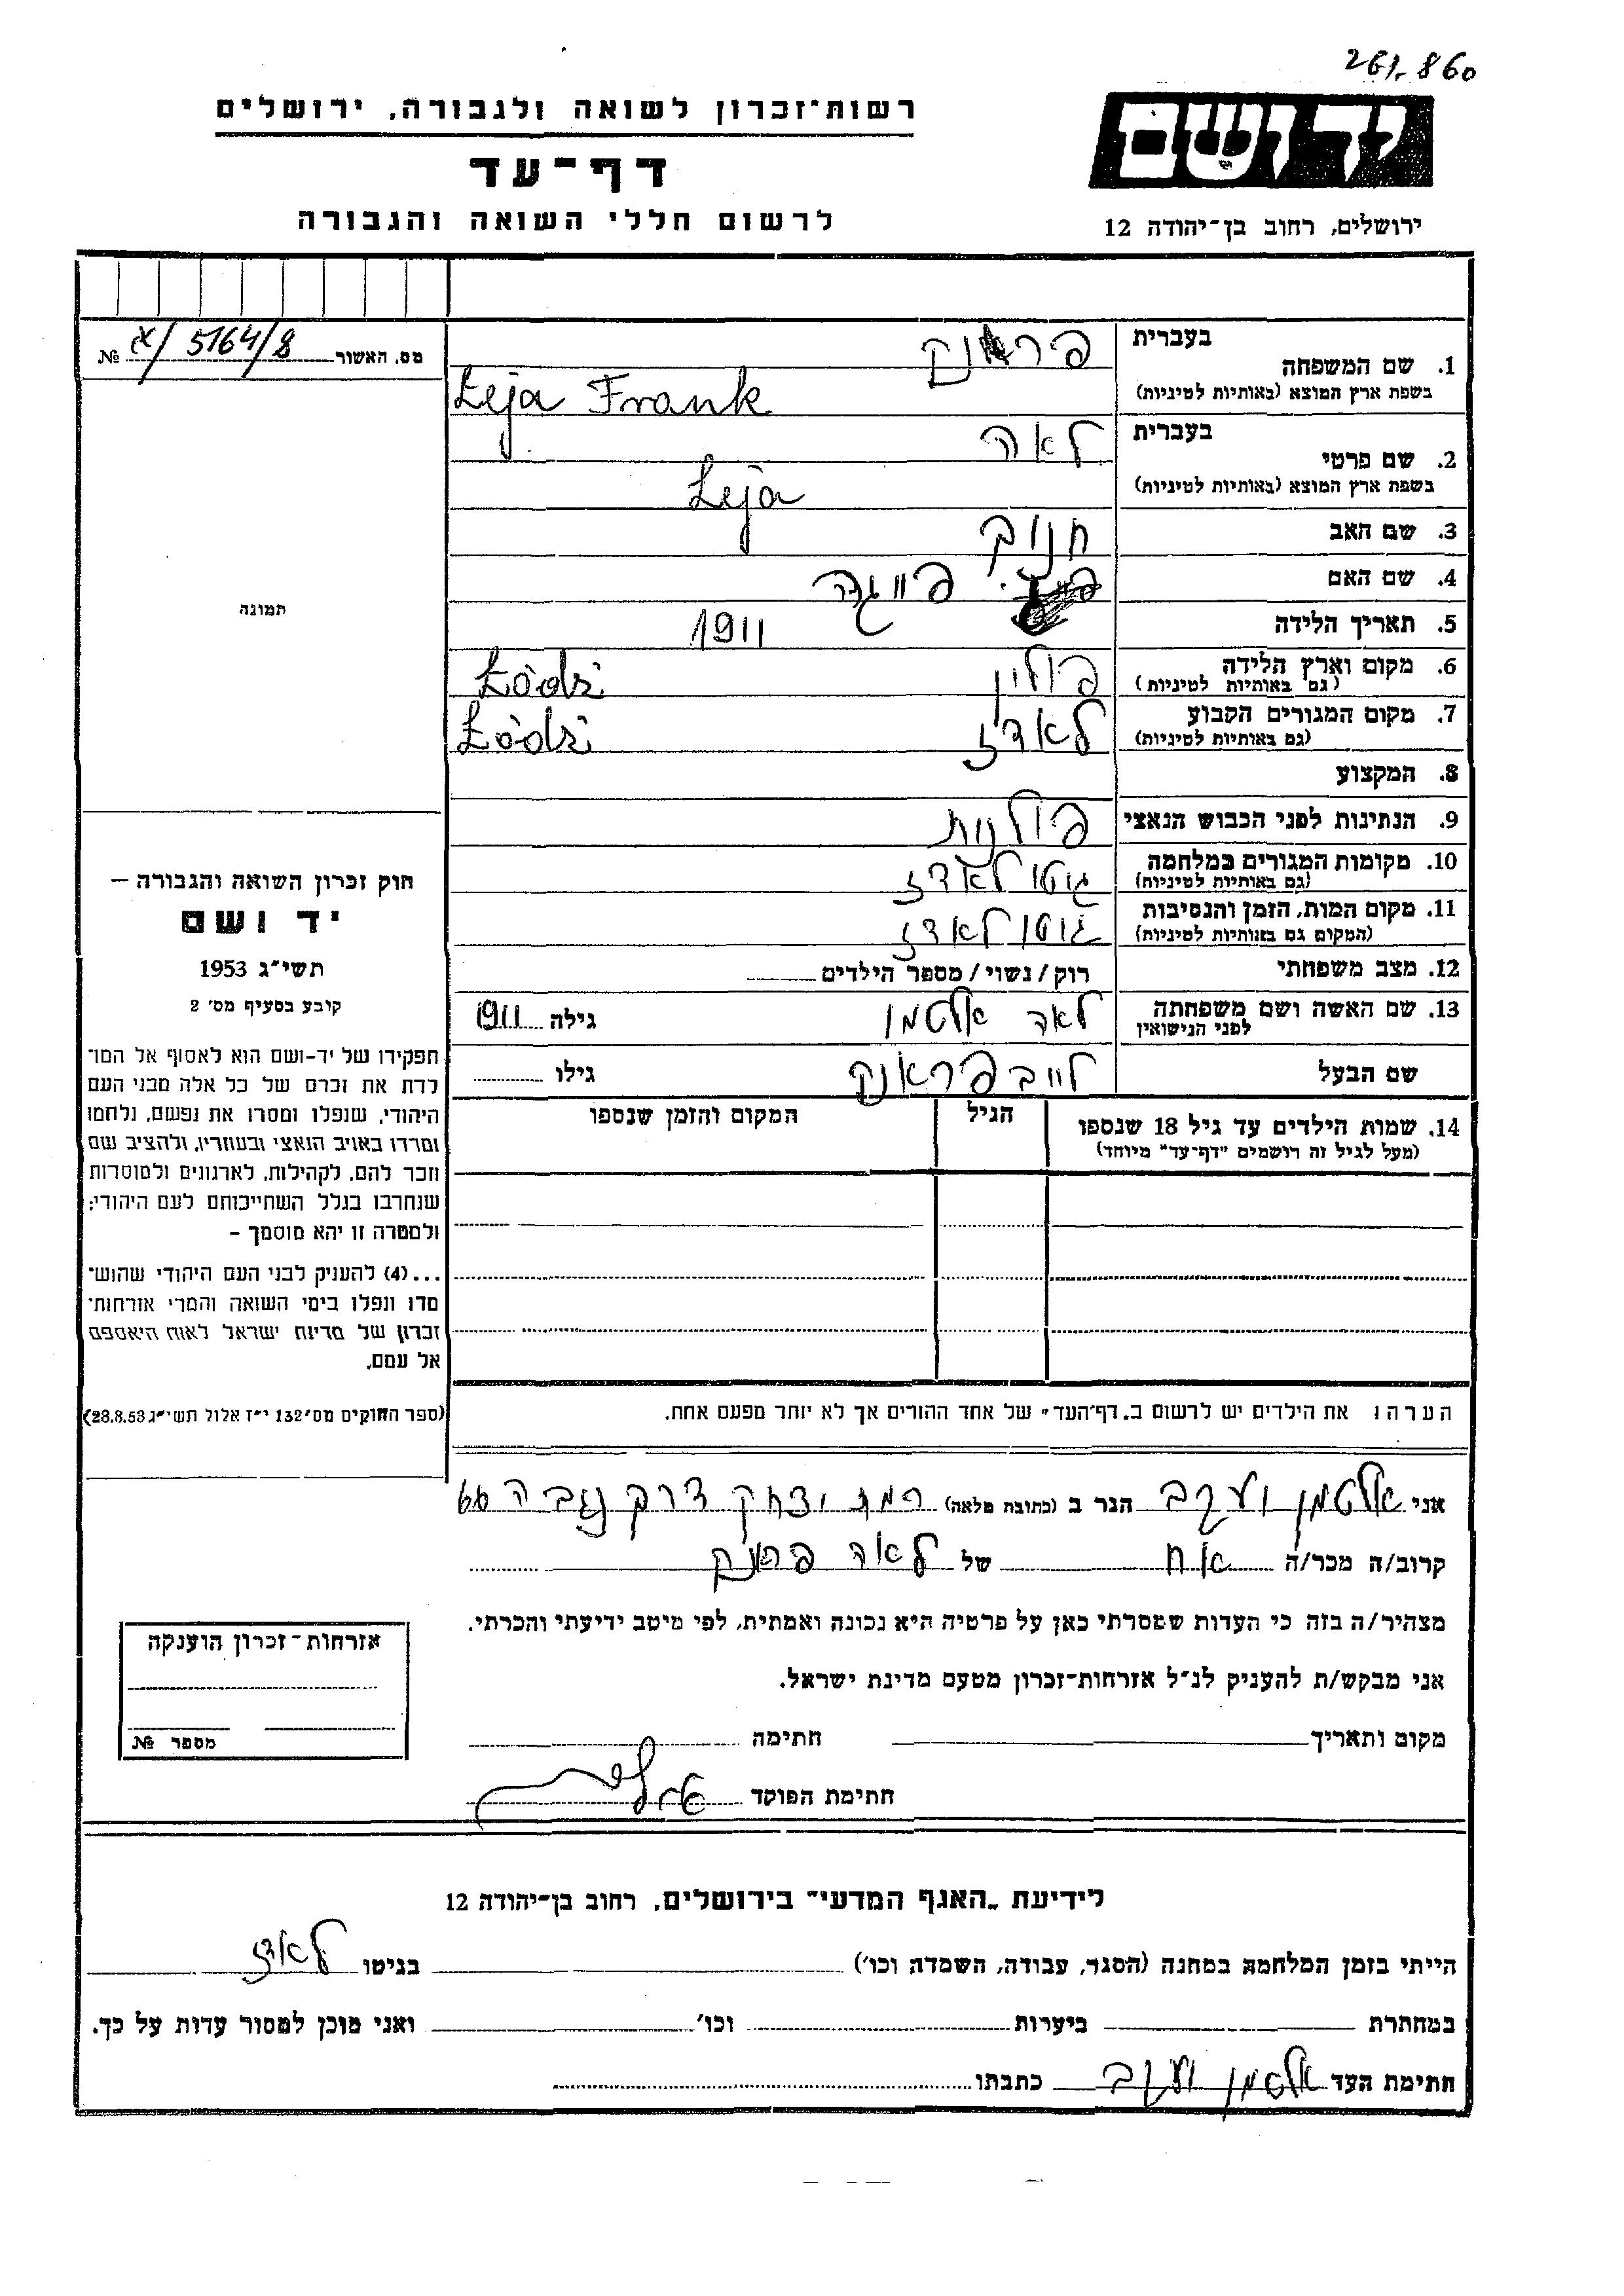 261.860
יד ושם
ירושלים, רחוב בן־יהודה 12
רשות־זכרון לשואה ולגבורה, ירושלים
דף־עד
לרשום חללי השואה והגבורה
מס. האשור א/5164/8 №
תמונה
1. שם המשפחה בעברית פראנק
בשפת ארץ המוצא (באותיות לטיניות) Łeja Frank
2. שם פרטי בעברית לאה
בשפת ארץ המוצא (באותיות לטיניות) Łeja
3. שם האב חנוך
4. שם האם פייגה
5. תאריך הלידה 1911
6. מקום וארץ הלידה (גם באותיות לטיניות) פולין Łódź
7. מקום המגורים הקבוע (גם באותיות לטיניות) לאדז Łódź
8. המקצוע
9. הנתינות לפני הכבוש הנאצי פולנית
10. מקומות המגורים במלחמה (גם באותיות לטיניות) גיטו לאדז
11. מקום המות, הזמן והנסיבות (המקום גם באותיות לטיניות) גיטו לאדז
12. מצב משפחתי רוק/נשוי/מספר הילדים
13. שם האשה ושם משפחתה לפני הנישואין לאה אלטמן גילה 1911
שם הבעל לייב פראנק גילו
14. שמות הילדים עד גיל 18 שנספו הגיל המקום והזמן שנספו
(מעל לגיל זה רושמים "דף־עד" מיוחד)
חוק זכרון השואה והגבורה —
יד ושם
תשי״ג 1953
קובע בסעיף מס׳ 2
תפקידו של יד-ושם הוא לאסוף אל המו־
לדת את זכרם של כל אלה מבני העם
היהודי, שנפלו ומסרו את נפשם, נלחמו
ומרדו באויב הנאצי ובעוזריו, ולהציב שם
וזכר להם, לקהילות, לארגונים ולמוסדות
שנחרבו בגלל השתייכותם לעם היהודי;
ולמטרה זו יהא מוסמך –
...(4) להעניק לבני העם היהודי שהוש־
מדו ונפלו בימי השואה והמרי אזרחות־
זכרון של מדינת ישראל לאות היאספם
אל עמם.
(ספר החוקים מס׳ 132 י״ז אלול תשי״ג 28.8.53)
הערה: את הילדים יש לרשום ב„דף־העד״ של אחד ההורים אך לא יותר מפעם אחת.
אני אלטמן יעקב הגר ב (כתובת מלאה) רמת יצחק דרך נגבה 66
קרוב/ה מכר/ה אח של לאה פראנק
מצהיר/ה בזה כי העדות שמסרתי כאן על פרטיה היא נכונה ואמתית, לפי מיטב ידיעתי והכרתי.
אני מבקש/ת להעניק לנ״ל אזרחות־זכרון מטעם מדינת ישראל.
מקום ותאריך חתימה
חתימת הפוקד
אזרחות־זכרון הוענקה
מספר №
לידיעת „האגף המדעי״ בירושלים, רחוב בן־יהודה 12
הייתי בזמן המלחמה במחנה (הסגר, עבודה, השמדה וכו׳) בגיטו לאדז
במחתרת ביערות וכו׳ ואני מוכן למסור עדות על כך.
חתימת העד אלטמן יעקב כתבתו